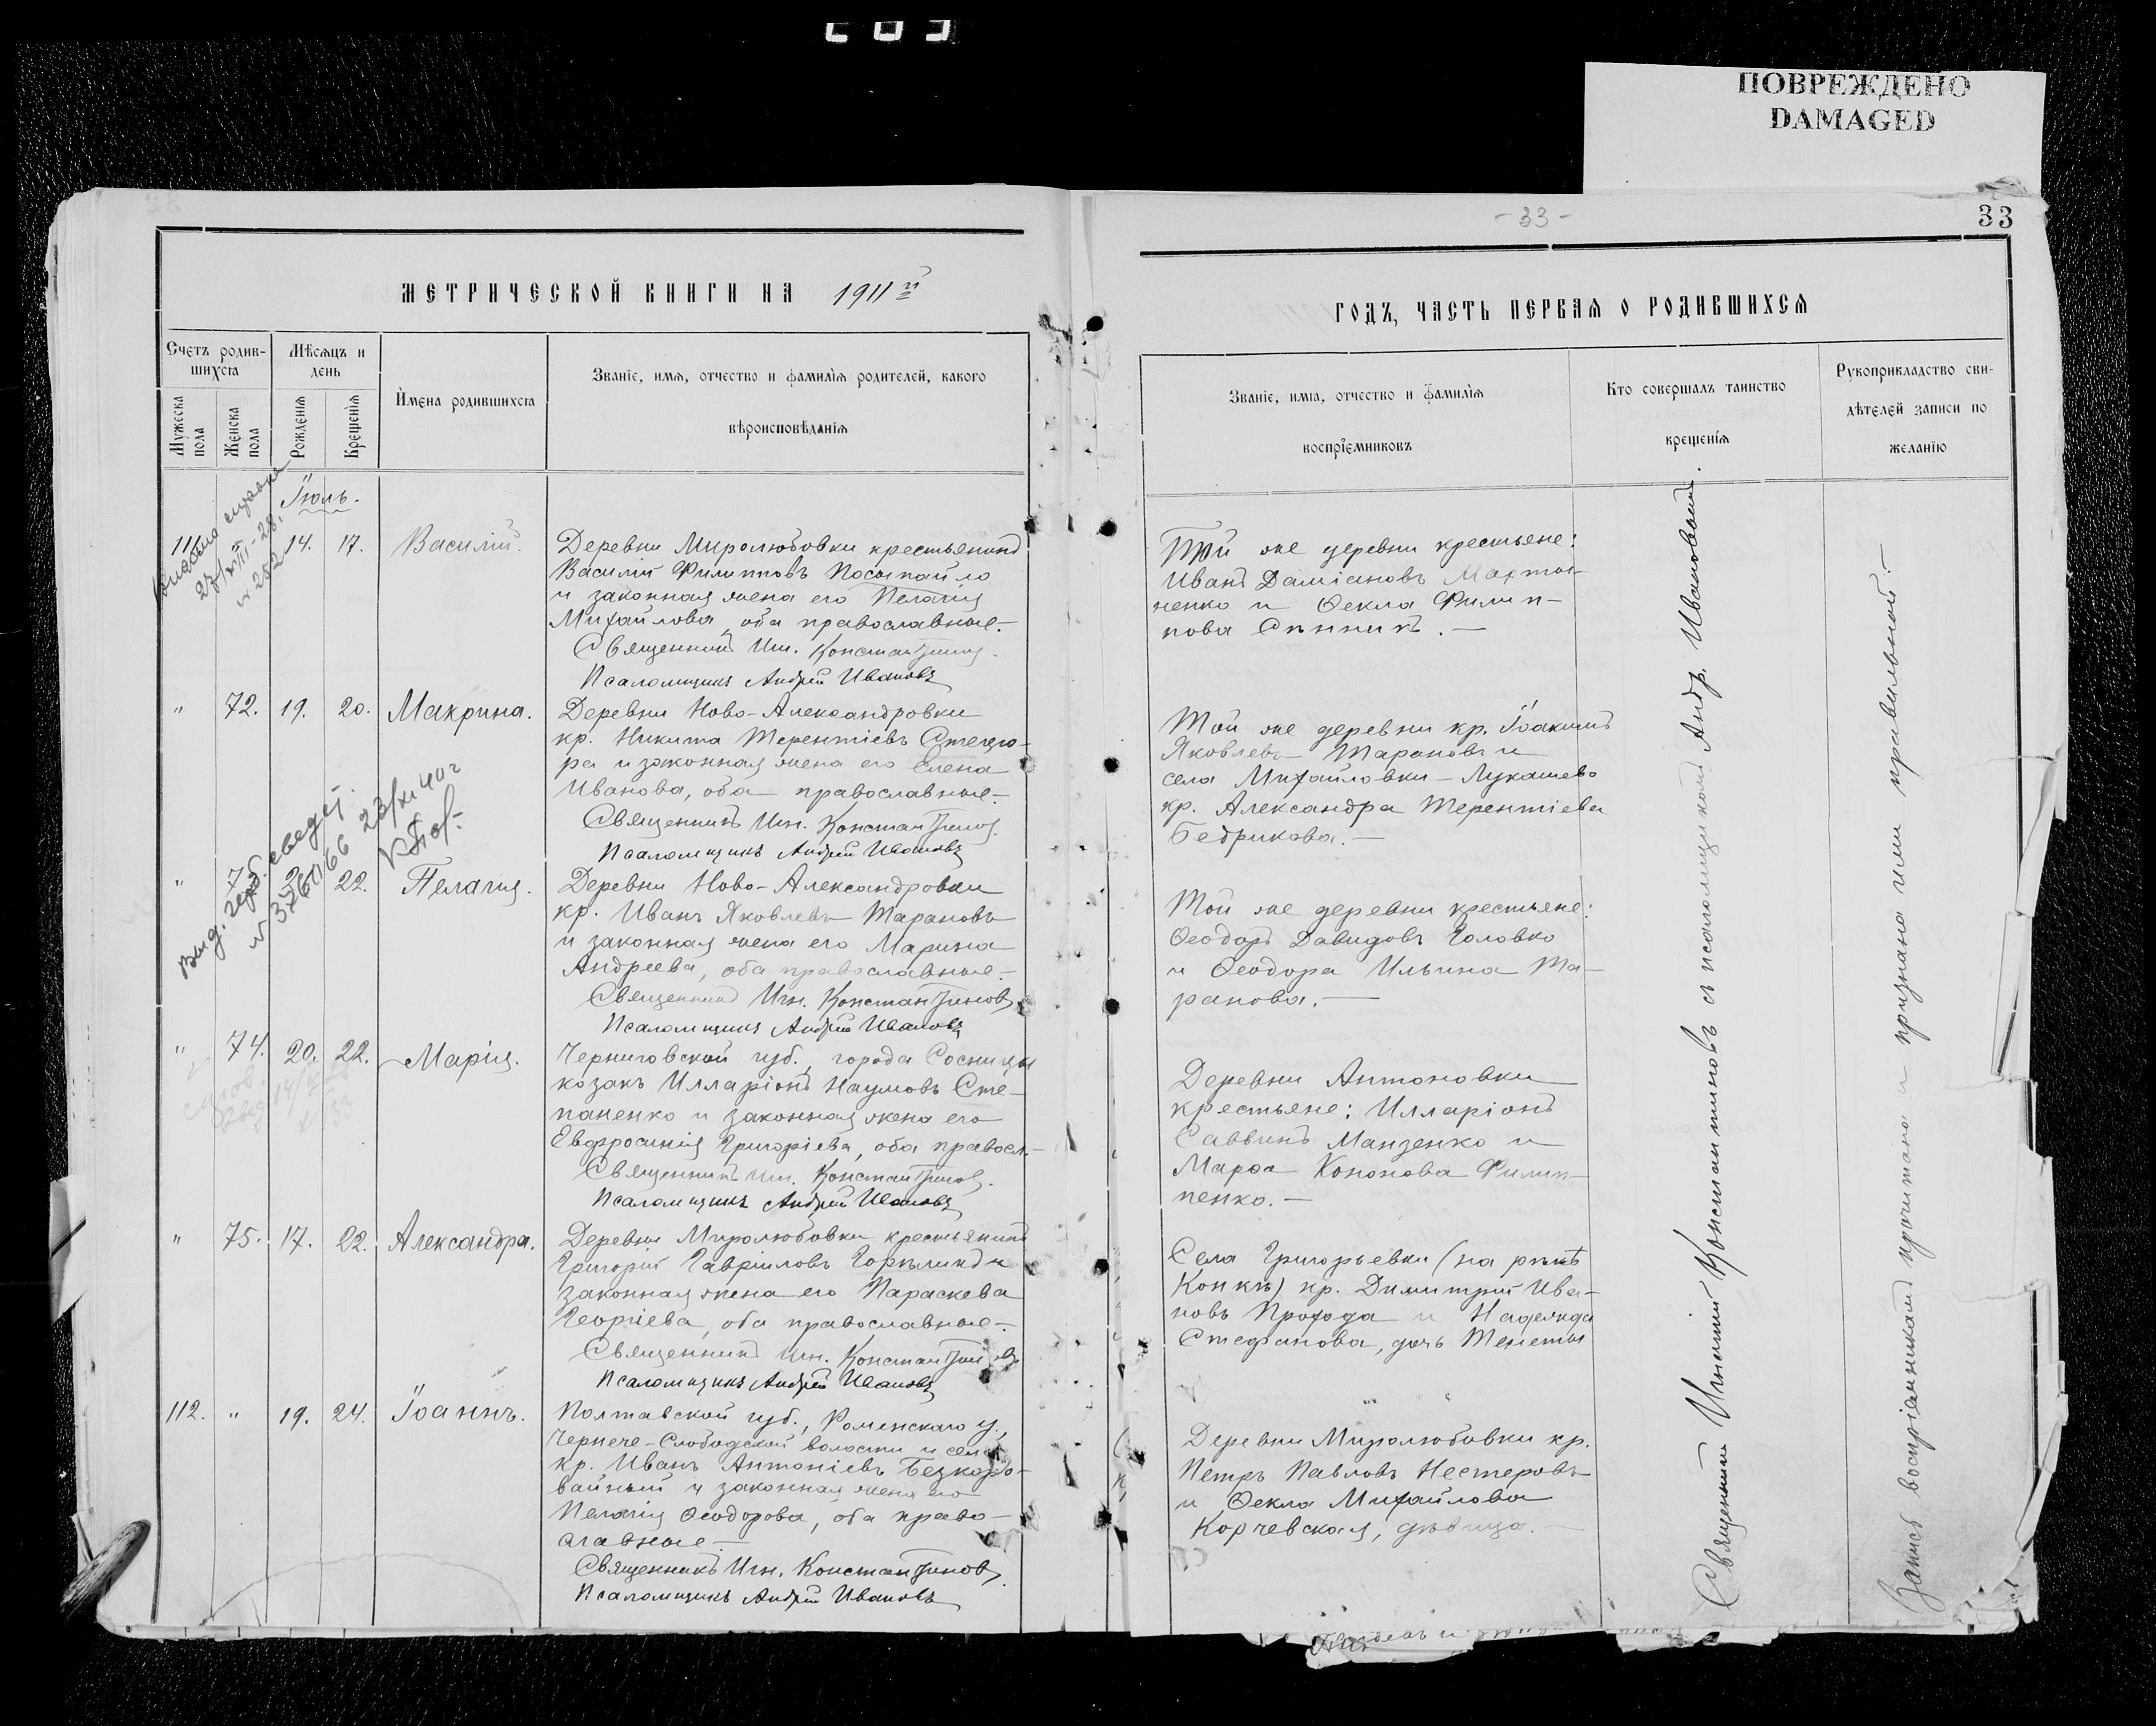 ПОВРЕЖДЕНО
DAMAGED
МЕТРИЧЕСКОЙ КНИГИ НА 1911й
Счетъ родив-
шихся
Мѣсяцъ и
день
Мужеска
пола
Женска
пола
Рожденія
Крещенія
Имена родившихся
Званіе, имя, отчество и фамилія родителей, какого
вѣроисповѣданія
Іюль.
111 14. 17. Василій.
Деревни Миролюбовки крестьянинъ
Василій Филипповъ Посыпайло
и законная жена его Пелагія
Михайлова, оба православные.-
Священникъ Игн. Константиновъ.
Псаломщикъ Андрей Ивановъ
" 72. 19. 20. Макрина.
Деревни Ново-Александровки
кр. Никита Терентіевъ
и законная жена его Елена
Иванова, оба православные.-
Священникъ Игн. Константиновъ.
Псаломщикъ Андрей Ивановъ
Выд. герб. свидет.
№ 23/XI 40г
" 22. Пелагія.
Деревни Ново-Александровки
кр. Иванъ Яковлевъ Тарановъ
и законная жена его Марина
Андреева, оба православные.-
Священникъ Игн. Константиновъ
Псаломщикъ Андрей Ивановъ
" 74. 20. 22. Марія.
Черниговской губ., города Сосницы
козакъ Илларіонъ Наумовъ Сте-
паненко и законная жена его
Евфросинія Григоріева, оба правосл.-
Священникъ Игн. Константиновъ.
Псаломщикъ Андрей Ивановъ
" 75. 17. 22. Александра.
Деревни Миролюбовки крестьянинъ
Григорій Гавріиловъ Горѣлинъ и
законная жена его Параскева
Георгіева, оба православные.-
Священникъ Игн. Константиновъ
Псаломщикъ Андрей Ивановъ
112. " 19. 24. Іоаннъ.
Полтавской губ., Роменскаго у.,
Чернече-Слободской волости и села
кр. Иванъ Антоніевъ Безкоро-
вайный и законная жена его
Пелагія Ѳеодорова, оба право-
славные.-
Священникъ Игн. Константиновъ.
Псаломщикъ Андрей Ивановъ
- 33 -
33
ГОДЪ, ЧАСТЬ ПЕРВАЯ О РОДИВШИХСЯ
Званіе, имя, отчество и фамилія
воспріемниковъ
Кто совершалъ таинство
крещенія
Рукоприкладство сви-
дѣтелей записи по
желанію
Той же деревни крестьяне:
Иванъ Даміановъ Марты-
ненко и Ѳекла Филип-
пова Сѣнникъ.-
Той же деревни кр. Іоакимъ
Яковлевъ Тарановъ и
села Михайловки-Лукашево
кр. Александра Терентіева
Бедрикова.-
Той же деревни крестьяне:
Ѳеодоръ Давидовъ Головко
и Ѳеодора Ильина Та-
ранова.-
Деревни Антоновки
крестьяне: Илларіонъ
Саввинъ Манзенко и
Марѳа Кононова Филип-
пенко.-
Села Григорьевки (на рѣкѣ
Конкѣ) кр. Димитрій Ива-
новъ Прохода и Надежда
Стефанова, дочь Тенеты
Деревни Миролюбовки кр.
Петръ Павловъ Нестеровъ
и Ѳекла Михайлова
Корчевская, дѣвица.-
Священникъ Игнатій Константиновъ съ псаломщикомъ Андр. Ивановымъ.
Запись воспріемникамъ прочитана и признана ими правильной.-